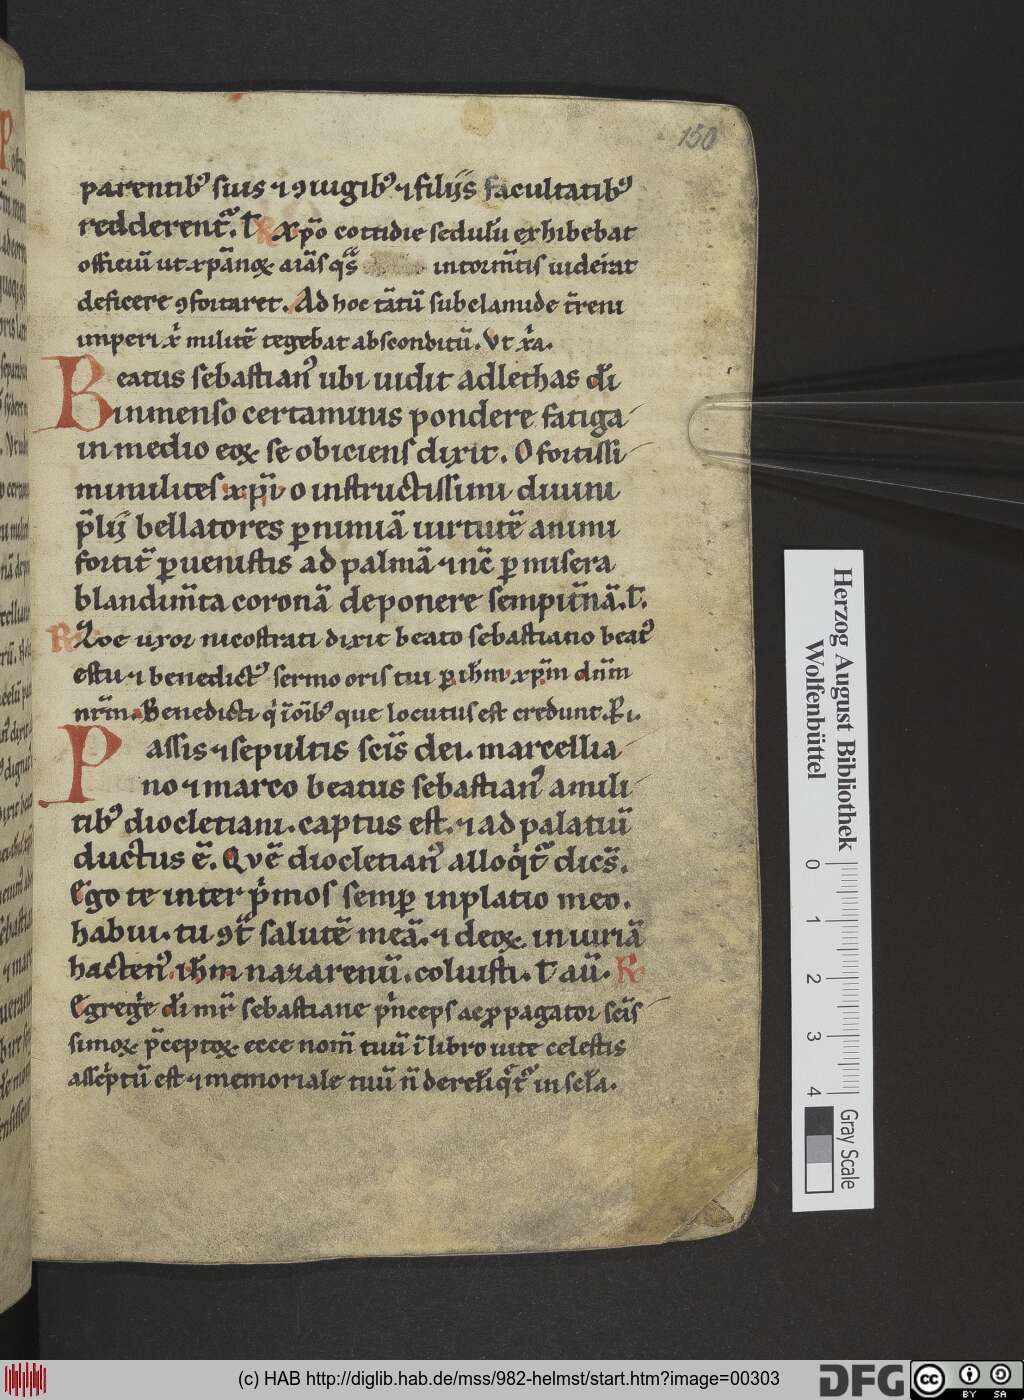 150
parentib᷒ suis ⁊ ꝯiugib᷒ ⁊ filijs facultatib᷒
redderent᷑. T᷒ R xp̄o cottidie sedulū exhibebat
officiū ut xp̄ianoꝝ aīas q̄s in tormt̄is uideīat
deficere ꝯfortaret. Ad hoc tātū sub clamide t̄reni
imperi x̄ militē tegebat absconditū. Vt x̄a.
Beatus sebastian᷒ ubi uidit adlethas dī
inmenso certaminis pondere fatiga
in medio eoꝝ se obiciens dixit. O fortissi
mi milites xp̄i o instructissimi diuini
p̄lij bellatores ꝑ nimiā uirtutē animi
fortit̄ ꝑuenistis ad palmā ⁊ nc̄ ꝑ misera
blandimt̄a coronā deponere sempit̄nā. T᷒.
R Zoe uxor nicostrati dixit beato sebastiano beat᷒
es tu ⁊ benedict᷒ sermo oris tui ꝑ ihm̄ xp̄m dn̄m
nr̄m. Benedicti q̇ ī oīb᷒ que locutus est credunt. R̄ i.
Passis ⁊ sepultis scīs dei. marcellia
no ⁊ marco beatus sebastian᷒ a mili
tib᷒ diocletiani. captus est. ⁊ ad palatiū
ductus ē. Quē diocletian᷒ alloq̇t᷑ dicēs.
Ego te inter ṗmos semꝑ in platio meo.
habui. tu ꝯt̄ salutē meā. ⁊ deoꝝ in iuriā
hacten᷒. ihm̄ nazarenū. coluisti. T᷒ aū. R
Egregie dī mr̄ sebastiane ṗnceps ac ꝓpagator scīs
simoꝝ p̄ceptoꝝ ecce nom̄ tuū ī libro uite celestis
assċptū est ⁊ memoriale tuū n̄ derelīq̄t᷑ in scl̄a.
Herzog August Bibliothek
Wolfenbüttel
0 1 2 3 4
Gray Scale
(c) HAB http://diglib.hab.de/mss/982-helmst/start.htm?image=00303
DFG
cc BY SA